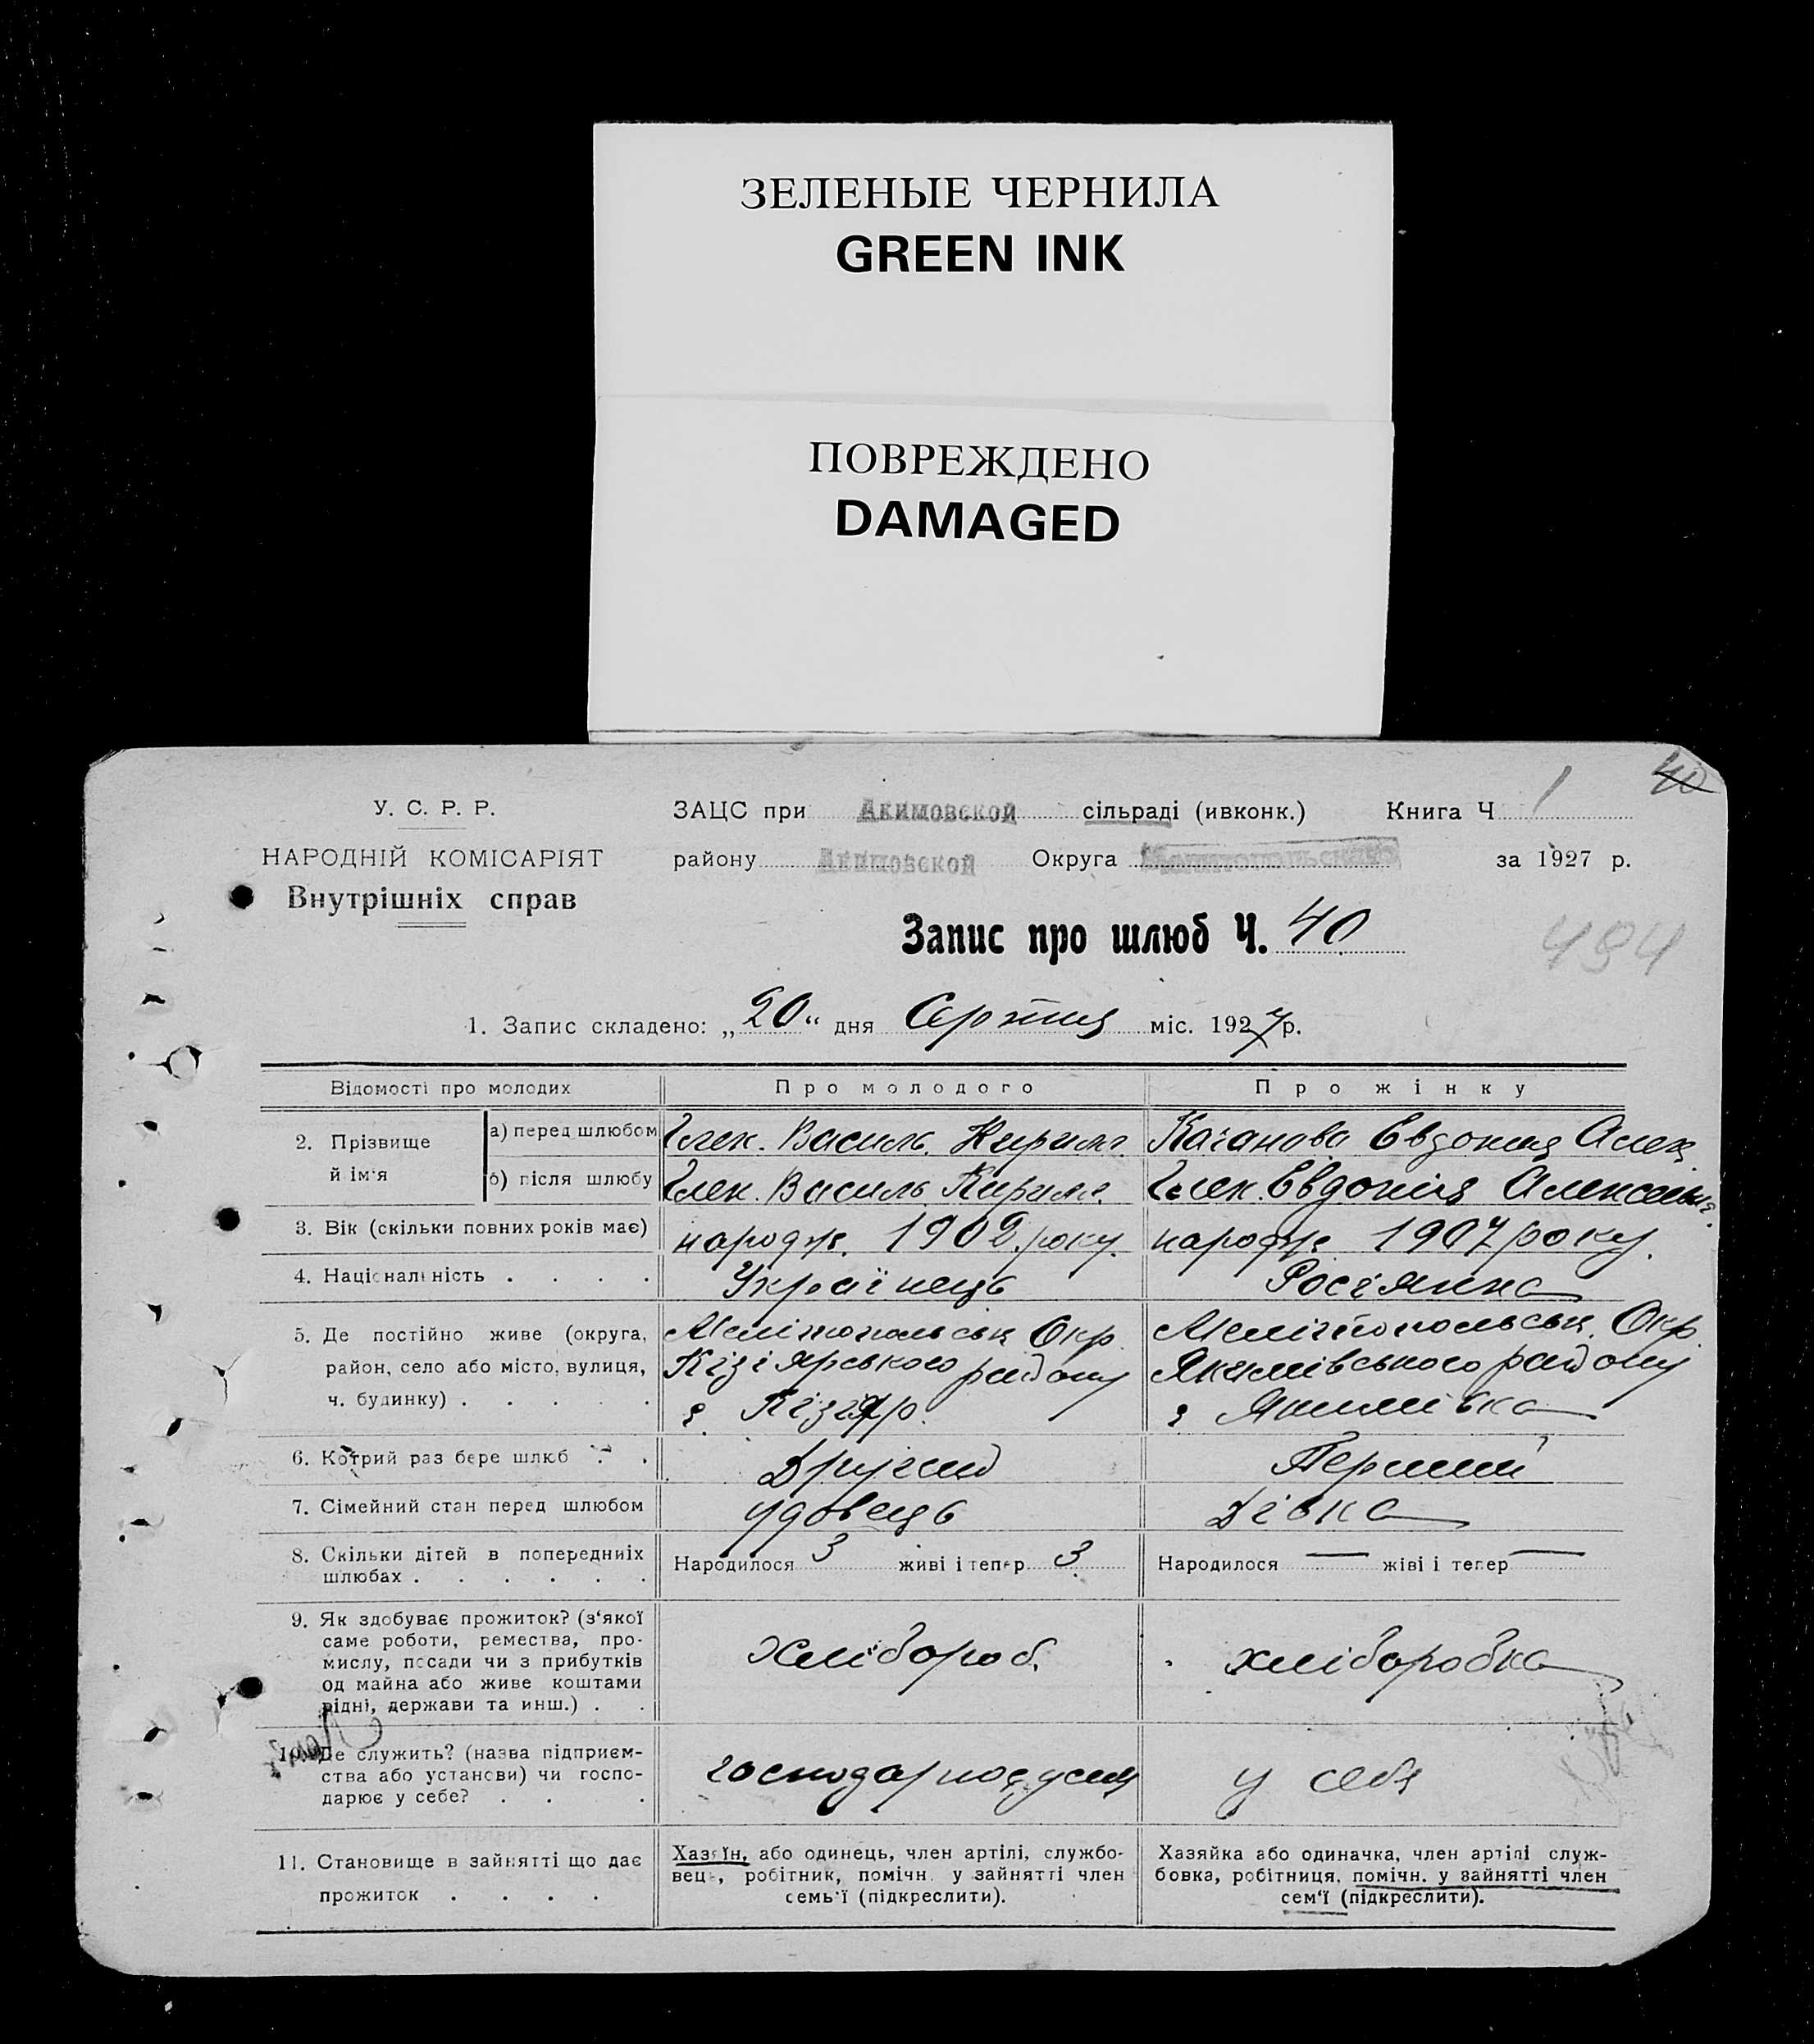 ЗЕЛЕНЫЕ ЧЕРНИЛА
GREEN INK
ПОВРЕЖДЕНО
DAMAGED
40
У. С. Р. Р.
ЗАЦС при Акимовской сільраді (ивконк.) Книга Ч 1
НАРОДНІЙ КОМІСАРІЯТ
району Акимовской Округа за 1927 р.
Внутрішніх справ
Запис про шлюб Ч. 40
494
1. Запис складено: „20“ дня Серпня міс. 1927 р.
Відомості про молодих
Про молодого
Про жінку
2. Прізвище й ім'я
а) перед шлюбом
Василь Кирил.
Качанова Евдокия Алек
б) після шлюбу
Василь Кирил.
Евдокія
3. Вік (скільки повних років має)
народж. 1902 року.
народж 1907 року.
4. Національність . . . .
Українець
Росіянка
5. Де постійно живе (округа,
район, село або місто, вулиця,
ч. будинку) . . . . .
Мелітопольськ Окр.
Кізіярського району
с. Кізіяр.
Мелітопольськ. Окр
Якимівського району
с Якимівка
6. Котрий раз бере шлюб . .
Другий
Перший
7. Сімейний стан перед шлюбом
удовець
Дівка
8. Скільки дітей в попередниіх
шлюбах . . . . . .
Народилося 3 живі і тепер 3
Народилося — жіві і тепер —
9. Як здобуває прожиток? (з‘якої
саме роботи, ремества, про-
мислу, посади чи з прибутків
од майна або живе коштами
рідні, держави та инш.) . .
хлібороб.
хліборобка
10. Де служить? (назва підприєм-
ства або установи) чи госпо-
дарює у себе? . . .
у себя
11. Становище в зайнятті що дає
прожиток . . . .
Хазяїн, або одинець, член артілі, службо-
вець, робітник, помічн. у зайнятті член
семь‘ї (підкреслити).
Хазяйка або одиначка, член артілі служ-
бовка, робітниця, помічн. у зайнятті член
сем‘ї (підкреслити).